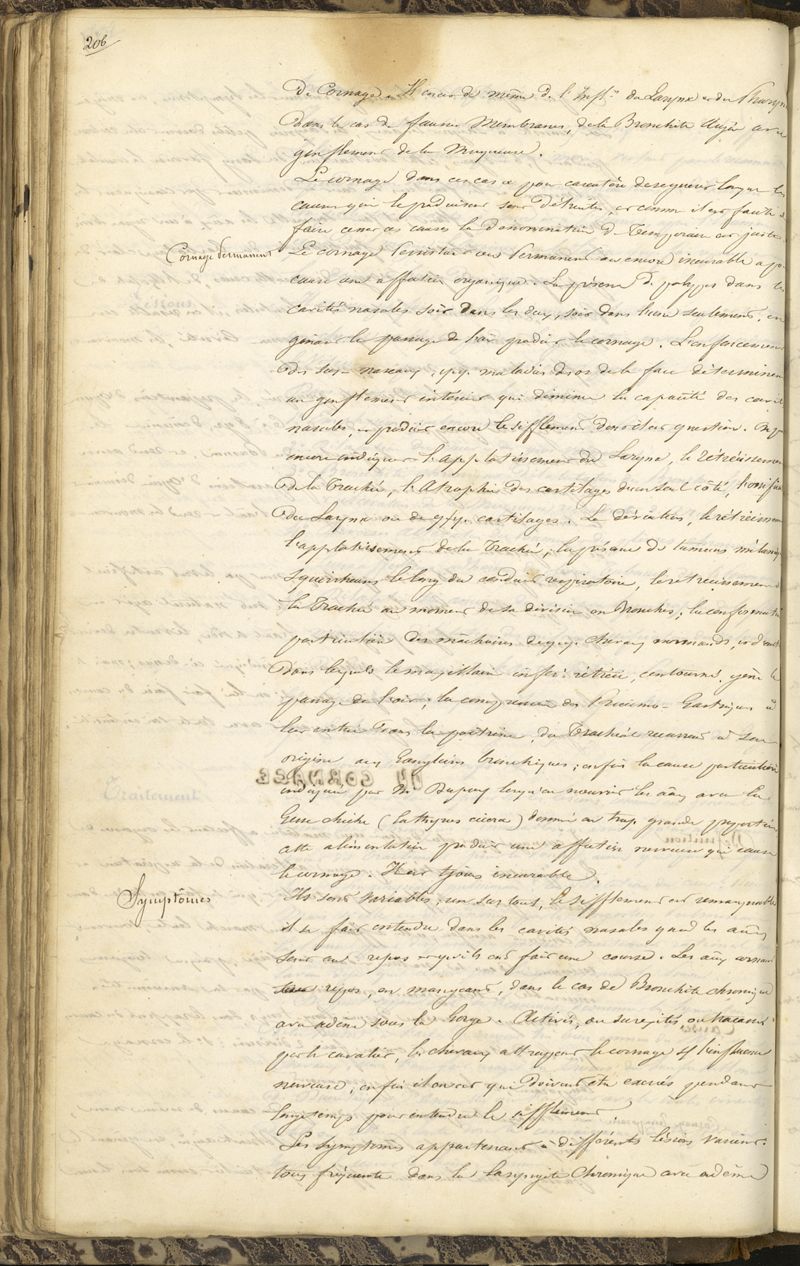 206
De Cornage. Il en est de même de l'Infl.on du Larynx et du Pharynx
dans le cas de fausses Membranes, de la Bronchite Aigüe avec
gonflement de la Muqueuse.
Le cornage dans ces cas a pour caractère de lorsque les
causes qui le produisent sont détruites, et comme il est facile de
faire cesser ces causes la dénomination de Temporaire est juste
Cornage Permanent
Le cornage Persistant ou Permanent ou encore incurable a pour
cause une affection organique. La présence de polypes dans les
cavités nasales soit dans les deux, soit dans l'une seulement, en
gênant le passage de l'air produit le cornage. L'enfoncement
des sus-naseaux, qq. maladies des os de la face déterminent
un gonflement intérieur qui diminue la capacité des cavités
nasales, et produit encore le sifflement dont il est question. On peut
encore indiquer l'applatissement du Larynx, le rétrécissement
de la Trachée, l'Atrophie des cartilages d'un seul côté,
du Larynx ou de qq. cartilages. La déviation, le rétrécissement
l'applatissement de la Trachée, la présence de tumeurs mélaniques
squirrheuses le long du conduit respiratoire, le rétrécissement de
la Trachée au moment de sa division en Bronches; la conformation
particulière des mâchoires de qq. chevaux normands,
dans lesquels le maxillaire inf.r rétréci, contourné, gêne le
passage de l'air; la compression des Pneumo-Gastriques à
leur entrée dans la poitrine, du Trachéal récurrent à son
origine aux Ganglions bronchiques; enfin la cause particulière
indiquée par M. Dupuy lorsqu'on nourrit les aux avec la
Gesse chiche (Lathyrus cicera) donnée en trop grande proportion
cette alimentation produit une affection nerveuse qui cause
le cornage. Il est tjours incurable.
Symptômes
Ils sont variables, un surtout, le sifflement est remarquable
il se fait entendre dans les cavités nasales quand les aux
sont au repos et qu'ils ont fait une course. Les aux cornent
au repos, en mangeant, dans le cas de Bronchite chronique
avec œdème sous la Gorge. Activés, ou
par le cavalier, les chevaux attrapent le cornage s/ l'influence
nerveuse, enfin il en est qui doivent être exercés pendant
longtemps pour entendre le sifflement.
Les symptômes appartenant à différentes lésions varient.
toux fréquente dans la Laryngite Chronique avec œdème